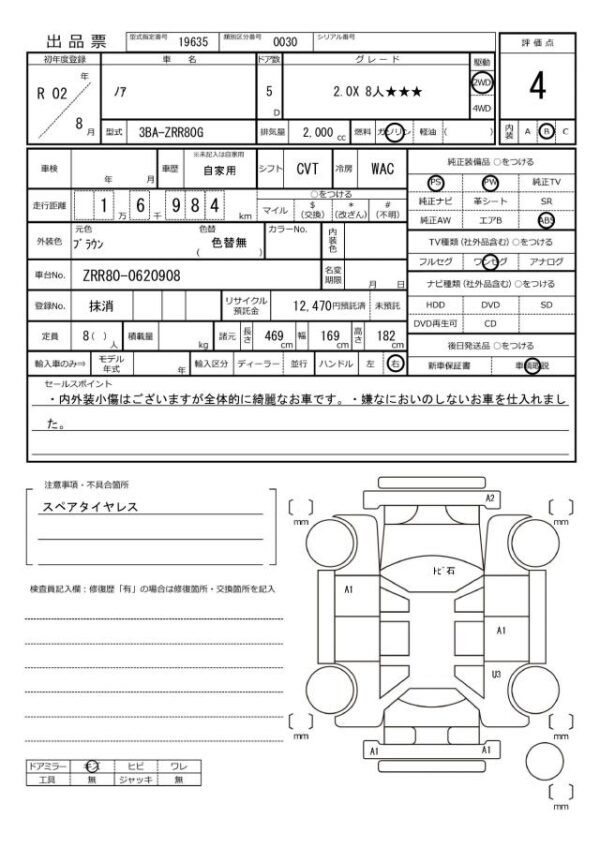 出品票 型式指定番号 19635 類別区分番号 0030 シリアル番号 評価点
初年度登録 車名 ドア数 グレード 駆動
R 02 年 8 月 ﾉｱ 5 D 2.0X 8人★★★ 2WD 4WD 4
型式 3BA-ZRR80G 排気量 2,000 cc 燃料 ガソリン 軽油 ( ) 内装 A B C
車検 年 月 車歴 ※未記入は自家用 自家用 シフト CVT 冷房 WAC 純正装備品 ○をつける
PS PW 純正TV
走行距離 1 万 6 千 9 8 4 km ○をつける マイル $ (交換) * (改ざん) # (不明) 純正ナビ 革シート SR
純正AW エアB ABS
外装色 元色 ﾌﾞﾗｳﾝ 色替 色替無 ( ) カラーNo. 内装色 TV種類 (社外品含む) ○をつける
フルセグ ワンセグ アナログ
車台No. ZRR80-0620908 名変期限 月 日 ナビ種類 (社外品含む) ○をつける
登録No. 抹消 リサイクル預託金 12,470円預託済 未預託 HDD DVD SD
DVD再生可 CD
定員 8( ) 人 積載量 kg 諸元 長さ 469 cm 幅 169 cm 高さ 182 cm 後日発送品 ○をつける
輸入車のみ⇒ モデル年式 年 輸入区分 ディーラー 並行 ハンドル 左 右 新車保証書
セールスポイント
・内外装小傷はございますが全体的に綺麗なお車です。・嫌なにおいのしないお車を仕入れまし
た。
注意事項・不具合箇所
スペアタイヤレス
検査員記入欄：修復歴「有」の場合は修復箇所・交換箇所を記入
mm A2 mm
ﾄﾋﾞ石
A1
A1
U3
mm A1 A1 mm
mm
ドアミラー キズ ヒビ ワレ
工具 無 ジャッキ 無